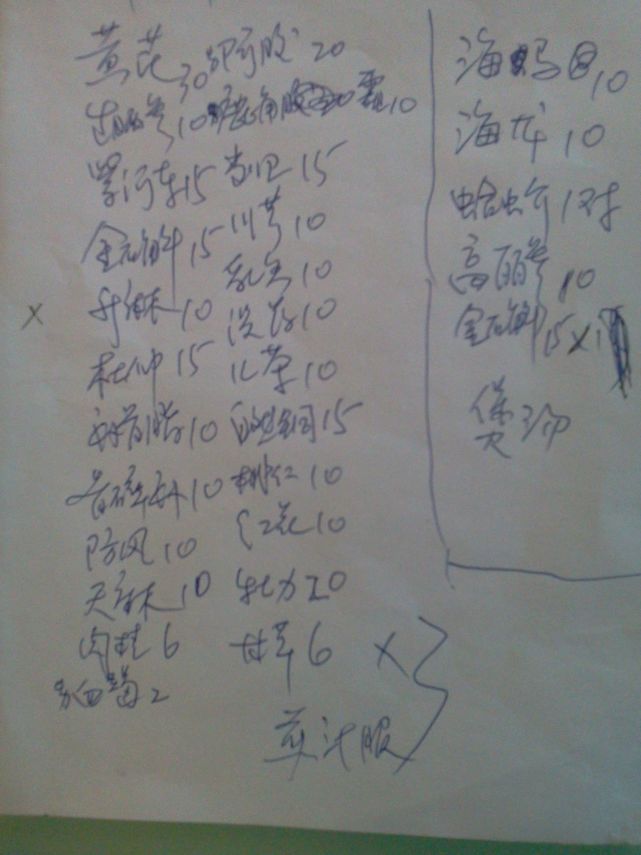 黄芪30 阿胶20
10 霜10
紫河车15 当归15
金石斛15 川芎10
升麻10 乳香10
杜仲15 没药10
10 儿茶10
骨碎补10 自然铜15
防风10 桃仁10
天麻10 红花10
肉桂6 牡力20
甘草6 X
2
煎汁服
X
海马10
海龙10
蛤蚧1对
高丽参10
金石斛15X1
煲汤